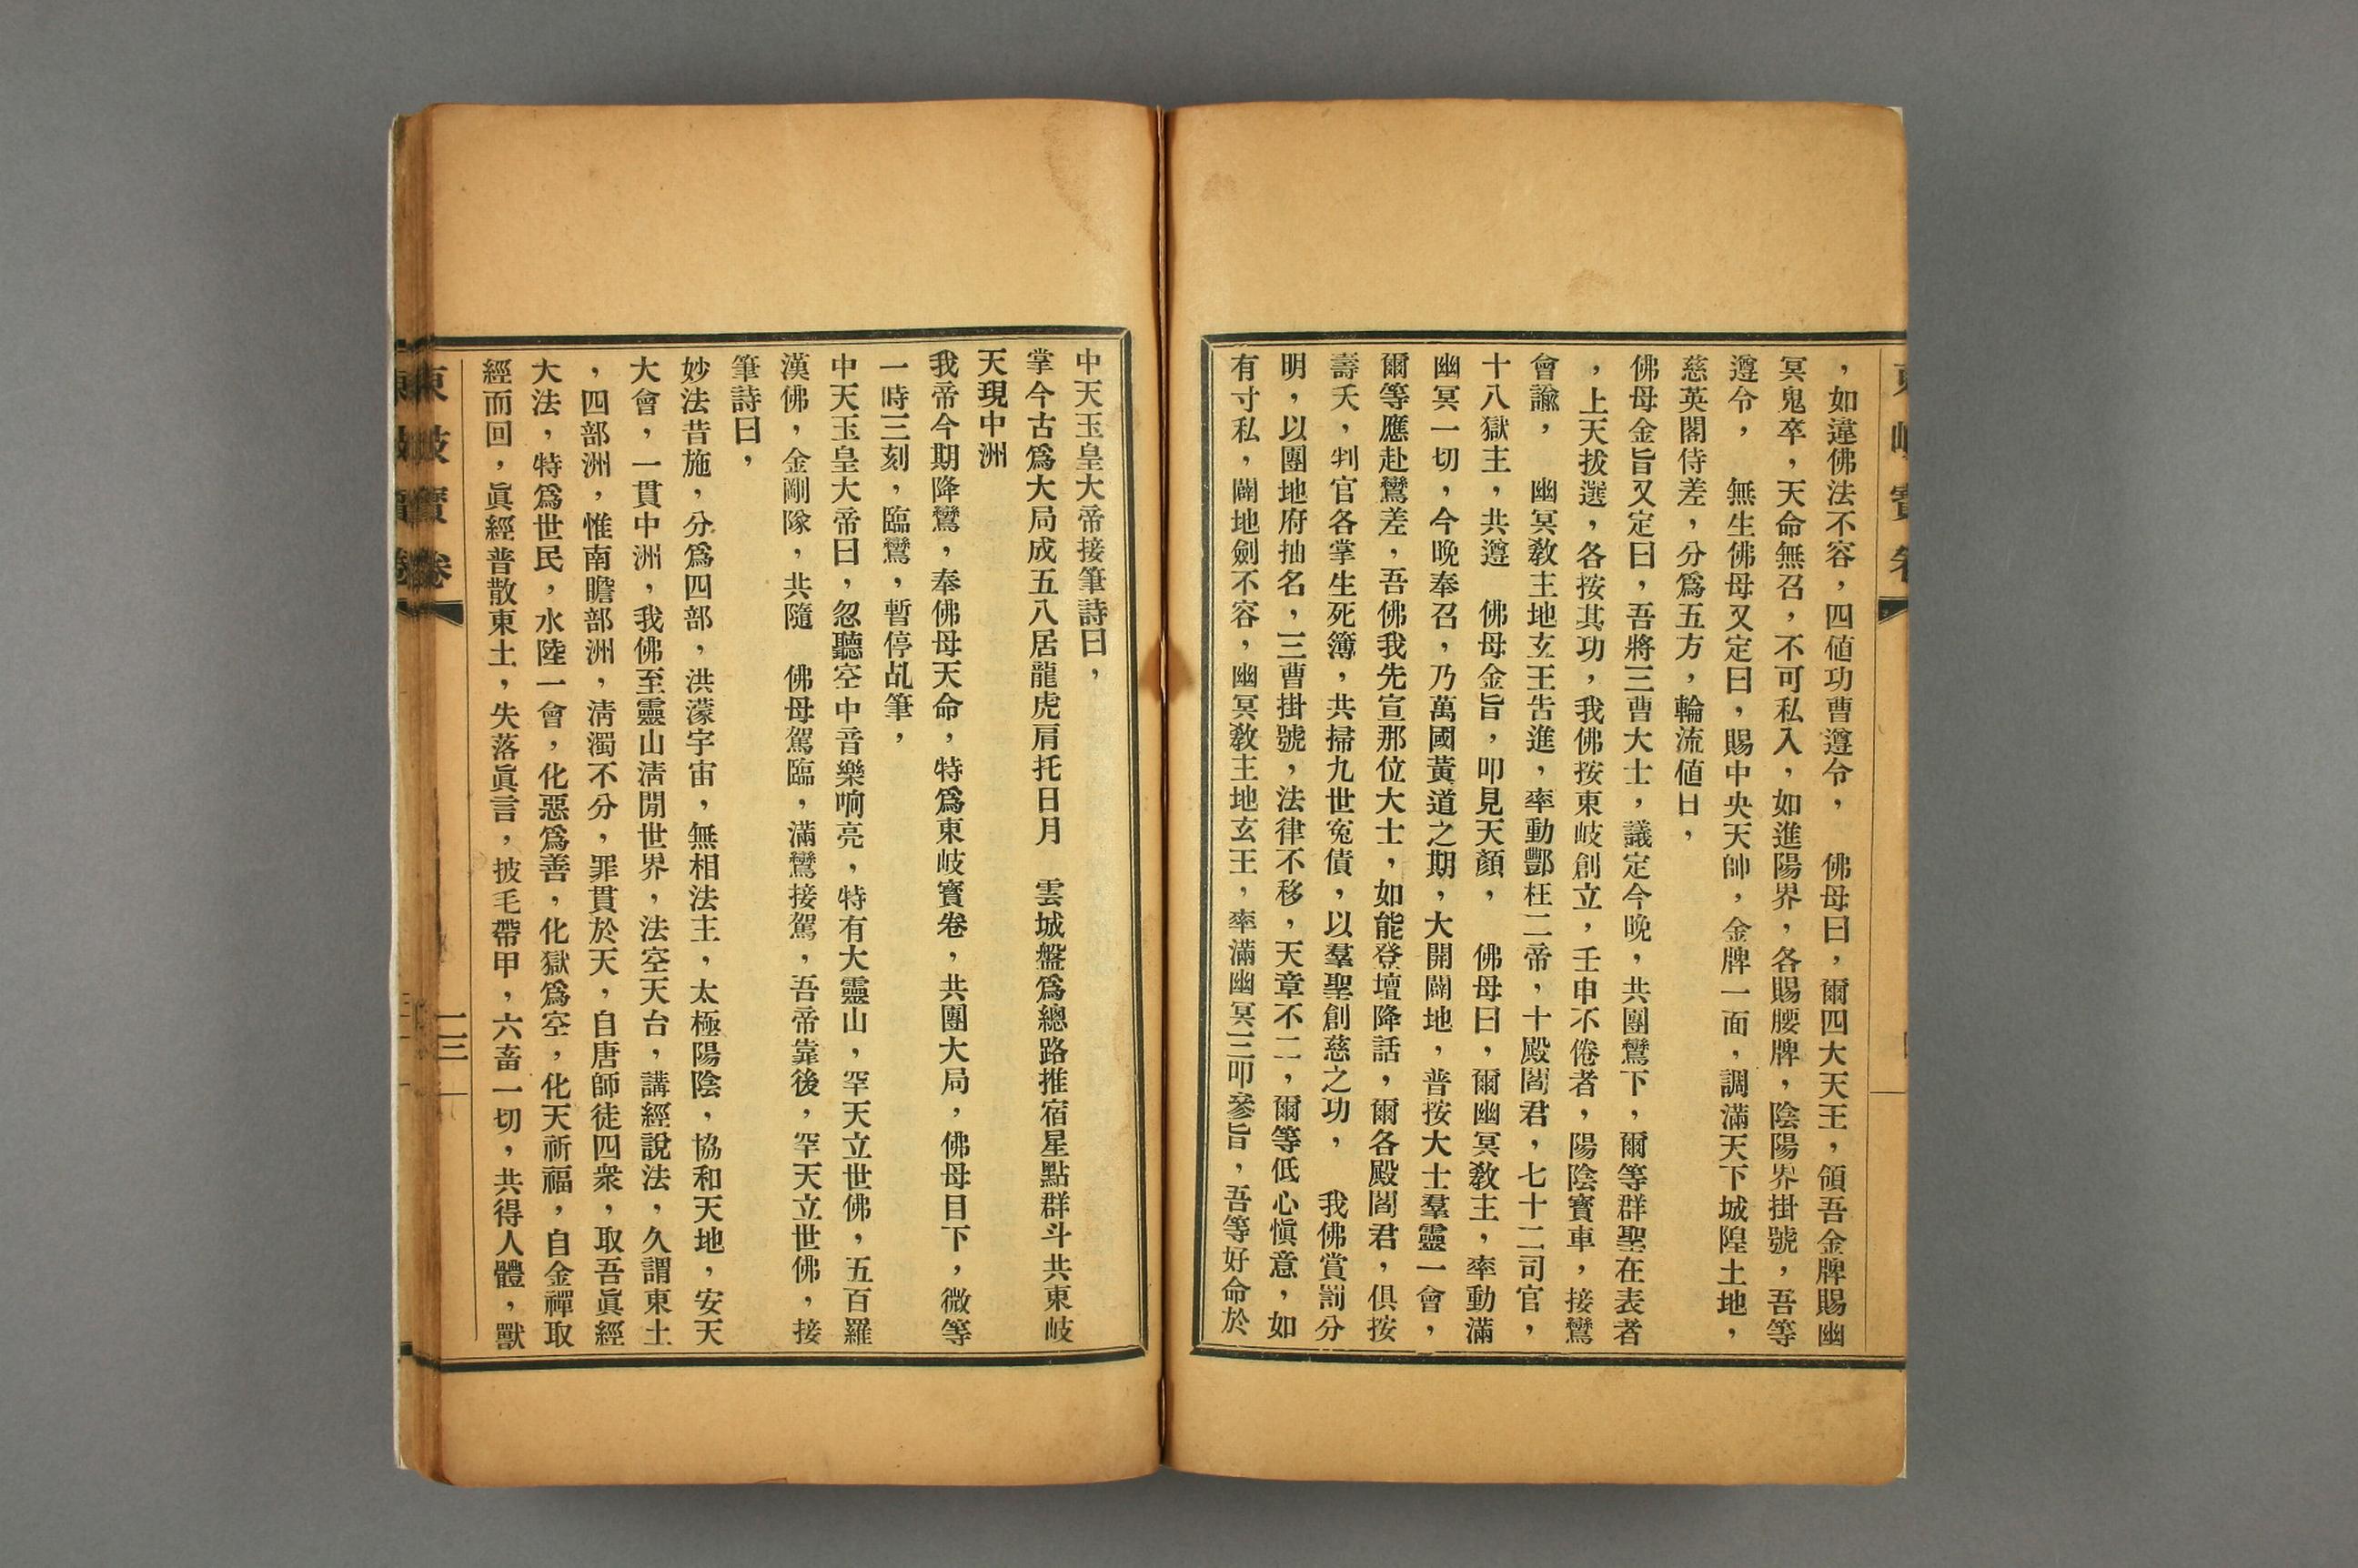 ，如違佛法不容，四値功曹遵令，　佛母曰，爾四大天王，領吾金牌賜幽
冥鬼卒，天命無召，不可私入，如進陽界，各賜腰牌，陰陽界掛號，吾等
遵令，　無生佛母又定曰，賜中央天帥，金牌一面，調滿天下城隍土地，
慈英閣侍差，分爲五方，輪流値日，
佛母金旨又定曰，吾將三曹大士，議定今晚，共團鸞下，爾等群聖在表者
，上天拔選，各按其功，我佛按東岐創立，壬申不倦者，陽陰寶車，接鸞
會諭，　幽冥敎主地玄王吿進，率動酆枉二帝，十殿閻君，七十二司官，
十八獄主，共遵　佛母金旨，叩見天顏，　佛母曰，爾幽冥敎主，率動滿
幽冥一切，今晚奉召，乃萬國黃道之期，大開闢地，普按大士羣靈一會，
爾等應赴鸞差，吾佛我先宣那位大士，如能登壇降話，爾各殿閻君，俱按
壽夭，判官各掌生死簿，共掃九世寃債，以羣聖創慈之功，　我佛賞罰分
明，以團地府抽名，三曹掛號，法律不移，天章不二，爾等低心愼意，如
有寸私，闢地劍不容，幽冥敎主地玄王，率滿幽冥三叩參旨，吾等好命於
中天玉皇大帝接筆詩曰，
掌今古爲大局成五八居龍虎肩托日月　雲城盤爲總路推宿星點群斗共東岐
天現中洲
我帝今期降鸞，奉佛母天命，特爲東岐寳卷，共團大局，佛母目下，微等
一時三刻，臨鸞，暫停乩筆，
中天玉皇大帝曰，忽聽空中音樂响亮，特有大靈山，罕天立世佛，五百羅
漢佛，金剛隊，共隨　佛母駕臨，滿鸞接駕，吾帝靠後，罕天立世佛，接
筆詩曰，
妙法昔施，分爲四部，洪濛宇宙，無相法主，太極陽陰，協和天地，安天
大會，一貫中洲，我佛至靈山淸閒世界，法空天台，講經說法，久謂東土
，四部洲，惟南瞻部洲，淸濁不分，罪貫於天，自唐師徒四衆，取吾眞經
大法，特爲世民，水陸一會，化惡爲善，化獄爲空，化天祈福，自金禪取
經而回，眞經普散東土，失落眞言，披毛帶甲，六畜一切，共得人體，獸
東岐寳卷
二三